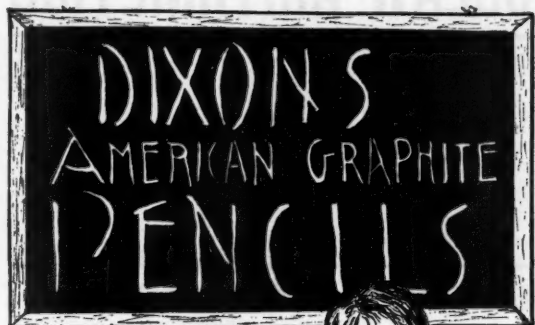 DIXONS
AMERICAN GRAPHITE
PENCILS